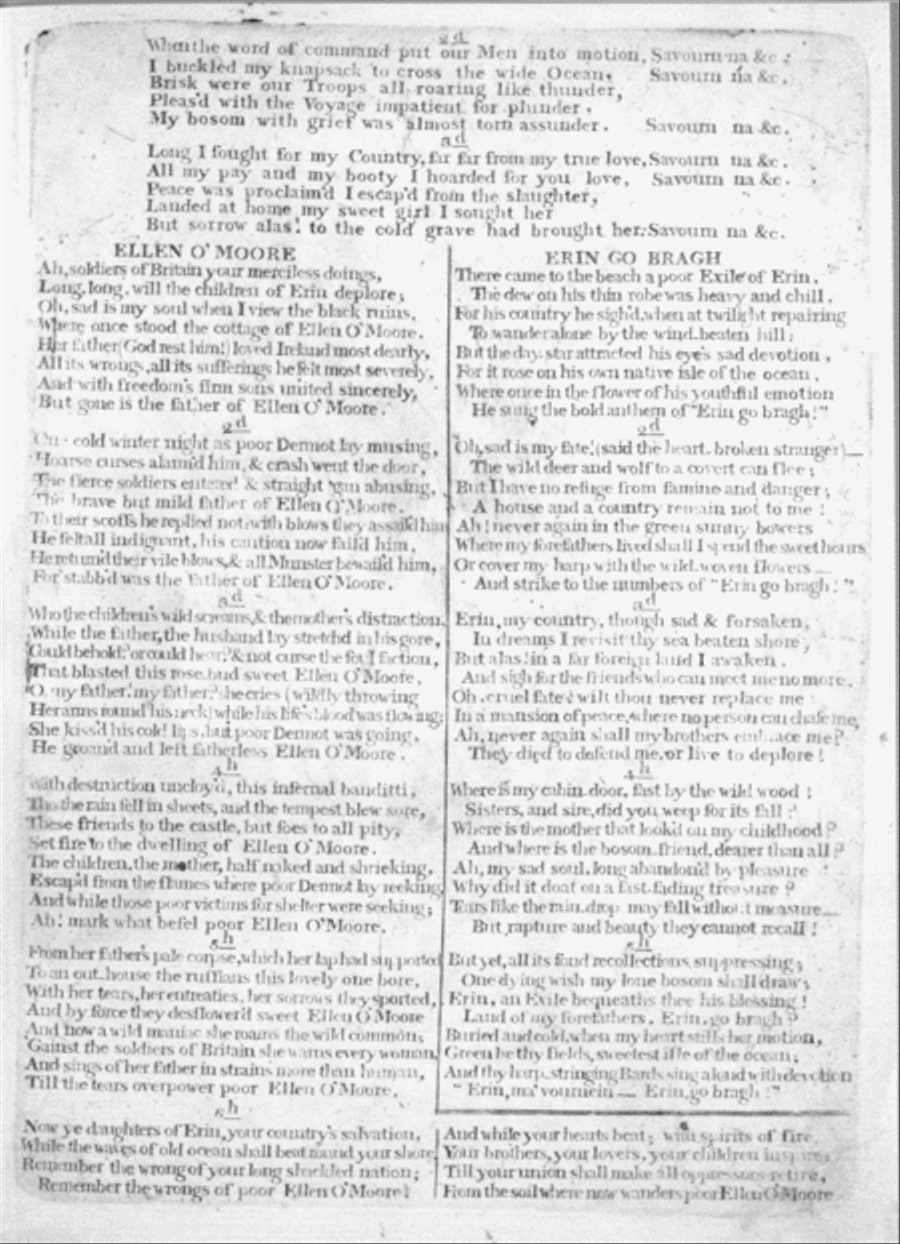 2d
When the word of command put our Men into motion, Savourn na &c :
I buckled my knapsack to cross the wide Ocean, Savourn na &c.
Brisk were our Troops all roaring like thunder,
Pleas'd with the Voyage impatient for plunder.
My bosom with grief was almost torn assunder. Savourn na &c.
3d
Long I fought for my Country, far far from my true love, Savourn na &c.
All my pay and my booty I hoarded for you love, Savourn na &c.
Peace was proclaim'd I escap'd from the slaughter,
Landed at home my sweet girl I sought her
But sorrow alas! to the cold grave had brought her. Savourn na &c.
ELLEN O'MOORE
Ah, soldiers of Britain your merciless doings,
Long, long, will the children of Erin deplore;
Oh, sad is my soul when I view the black ruins,
Where once stood the cottage of Ellen O'Moore.
Her father (God rest him!) loved Ireland most dearly,
All its wrongs, all its sufferings he felt most severely,
And with freedom's firm sons united sincerely,
But gone is the father of Ellen O'Moore.
2d
One cold winter night as poor Dermot lay musing,
Hoarse curses alarm'd him, & crash went the door,
The fierce soldiers enter'd & straight 'gan abusing,
The brave but mild father of Ellen O'Moore.
To their scoffs he replied not, with blows they assail'd him
He felt all indignant, his caution now fail'd him,
He return'd their vile blows, & all Munster bewail'd him,
For stabb'd was the father of Ellen O'Moore.
3d
Who the children's wild screams, & the mother's distraction,
While the father, the husband lay stretch'd in his gore,
Could behold, or could hear, & not curse the foul faction,
That blasted this rose bud sweet Ellen O'Moore.
"O, my father! my father!" she cries (wildly throwing
Her arms round his neck) while his life's blood was flowing;
She kiss'd his cold lips, but poor Dermot was going,
He groand and left fatherless Ellen O'Moore.
4h
With destruction uncloy'd, this infernal banditti,
Tho the rain fell in sheets, and the tempest blew sore,
These friends to the castle, but foes to all pity,
Set fire to the dwelling of Ellen O'Moore.
The children, the mother, half naked and shrieking,
Escap'd from the flames where poor Dermot lay reeking,
And while those poor victims for shelter were seeking;
Ah! mark what befel poor Ellen O'Moore.
5h
From her father's pale corpse, which her lap had supported
To an out-house the ruffians this lovely one bore,
With her tears, her entreaties, her sorrows they sported,
And by force they desflower'd sweet Ellen O'Moore
And now a wild maniac she roams the wild common,
'Gainst the soldiers of Britain she warns every woman,
And sings of her father in strains more than human,
Till the tears overpower poor Ellen O'Moore.
6h
Now ye daughters of Erin, your country's salvation,
While the waves of old ocean shall beat round your shore,
Remember the wrong of your long shackled nation;
Remember the wrongs of poor Ellen O'Moore!
And while your hearts beat; with spirits of fire
Your brothers, your lovers, your children inspire,
Till your union shall make all oppressors retire,
From the soil where now wanders poor Ellen O'Moore
ERIN GO BRAGH
There came to the beach a poor Exile of Erin,
The dew on his thin robe was heavy and chill.
For his country he sigh'd, when at twilight repairing
To wander alone by the wind-beaten hill:
But the day-star attracted his eye's sad devotion,
For it rose on his own native isle of the ocean,
Where once in the flower of his youthful emotion
He sung the bold anthem of "Erin go bragh!"
2d
Oh, sad is my fate! (said the heart-broken stranger)—
The wild deer and wolf to a covert can flee;
But I have no refuge from famine and danger;
A house and a country remain not to me!
Ah! never again in the green sunny bowers
Where my forefathers lived shall I spend the sweet hours
Or cover my harp with the wild-woven flowers—
And strike to the numbers of "Erin go bragh!"
3d
Erin, my country, though sad & forsaken,
In dreams I revisit thy sea beaten shore,
But alas! in a far foreign land I awaken,
And sigh for the friends who can meet me no more.
Oh, cruel fate! wilt thou never replace me
In a mansion of peace, where no person can chase me,
Ah, never again shall my brothers embrace me?
They died to defend me, or live to deplore!
4h
Where is my cabin-door, fast by the wild wood!
Sisters, and sire, did you weep for its fall?
Where is the mother that look'd on my childhood?
And where is the bosom-friend, dearer than all?
Ah, my sad soul, long abandon'd by pleasure
Why did it doat on a fast-fading treasure?
Tears like the rain-drop may fall without measure—
But rapture and beauty they cannot recall!
5h
But yet, all its fond recollections suppressing;
One dying wish my lone bosom shall draw;
Erin, an Exile bequeaths thee his blessing!
Land of my forefathers, Erin, go bragh?
Buried and cold, when my heart stills her motion,
Green be thy fields, sweetest isle of the ocean;
And thy harp-stringing Bards sing aloud with devotion
"Erin, ma vournein — Erin, go bragh!"